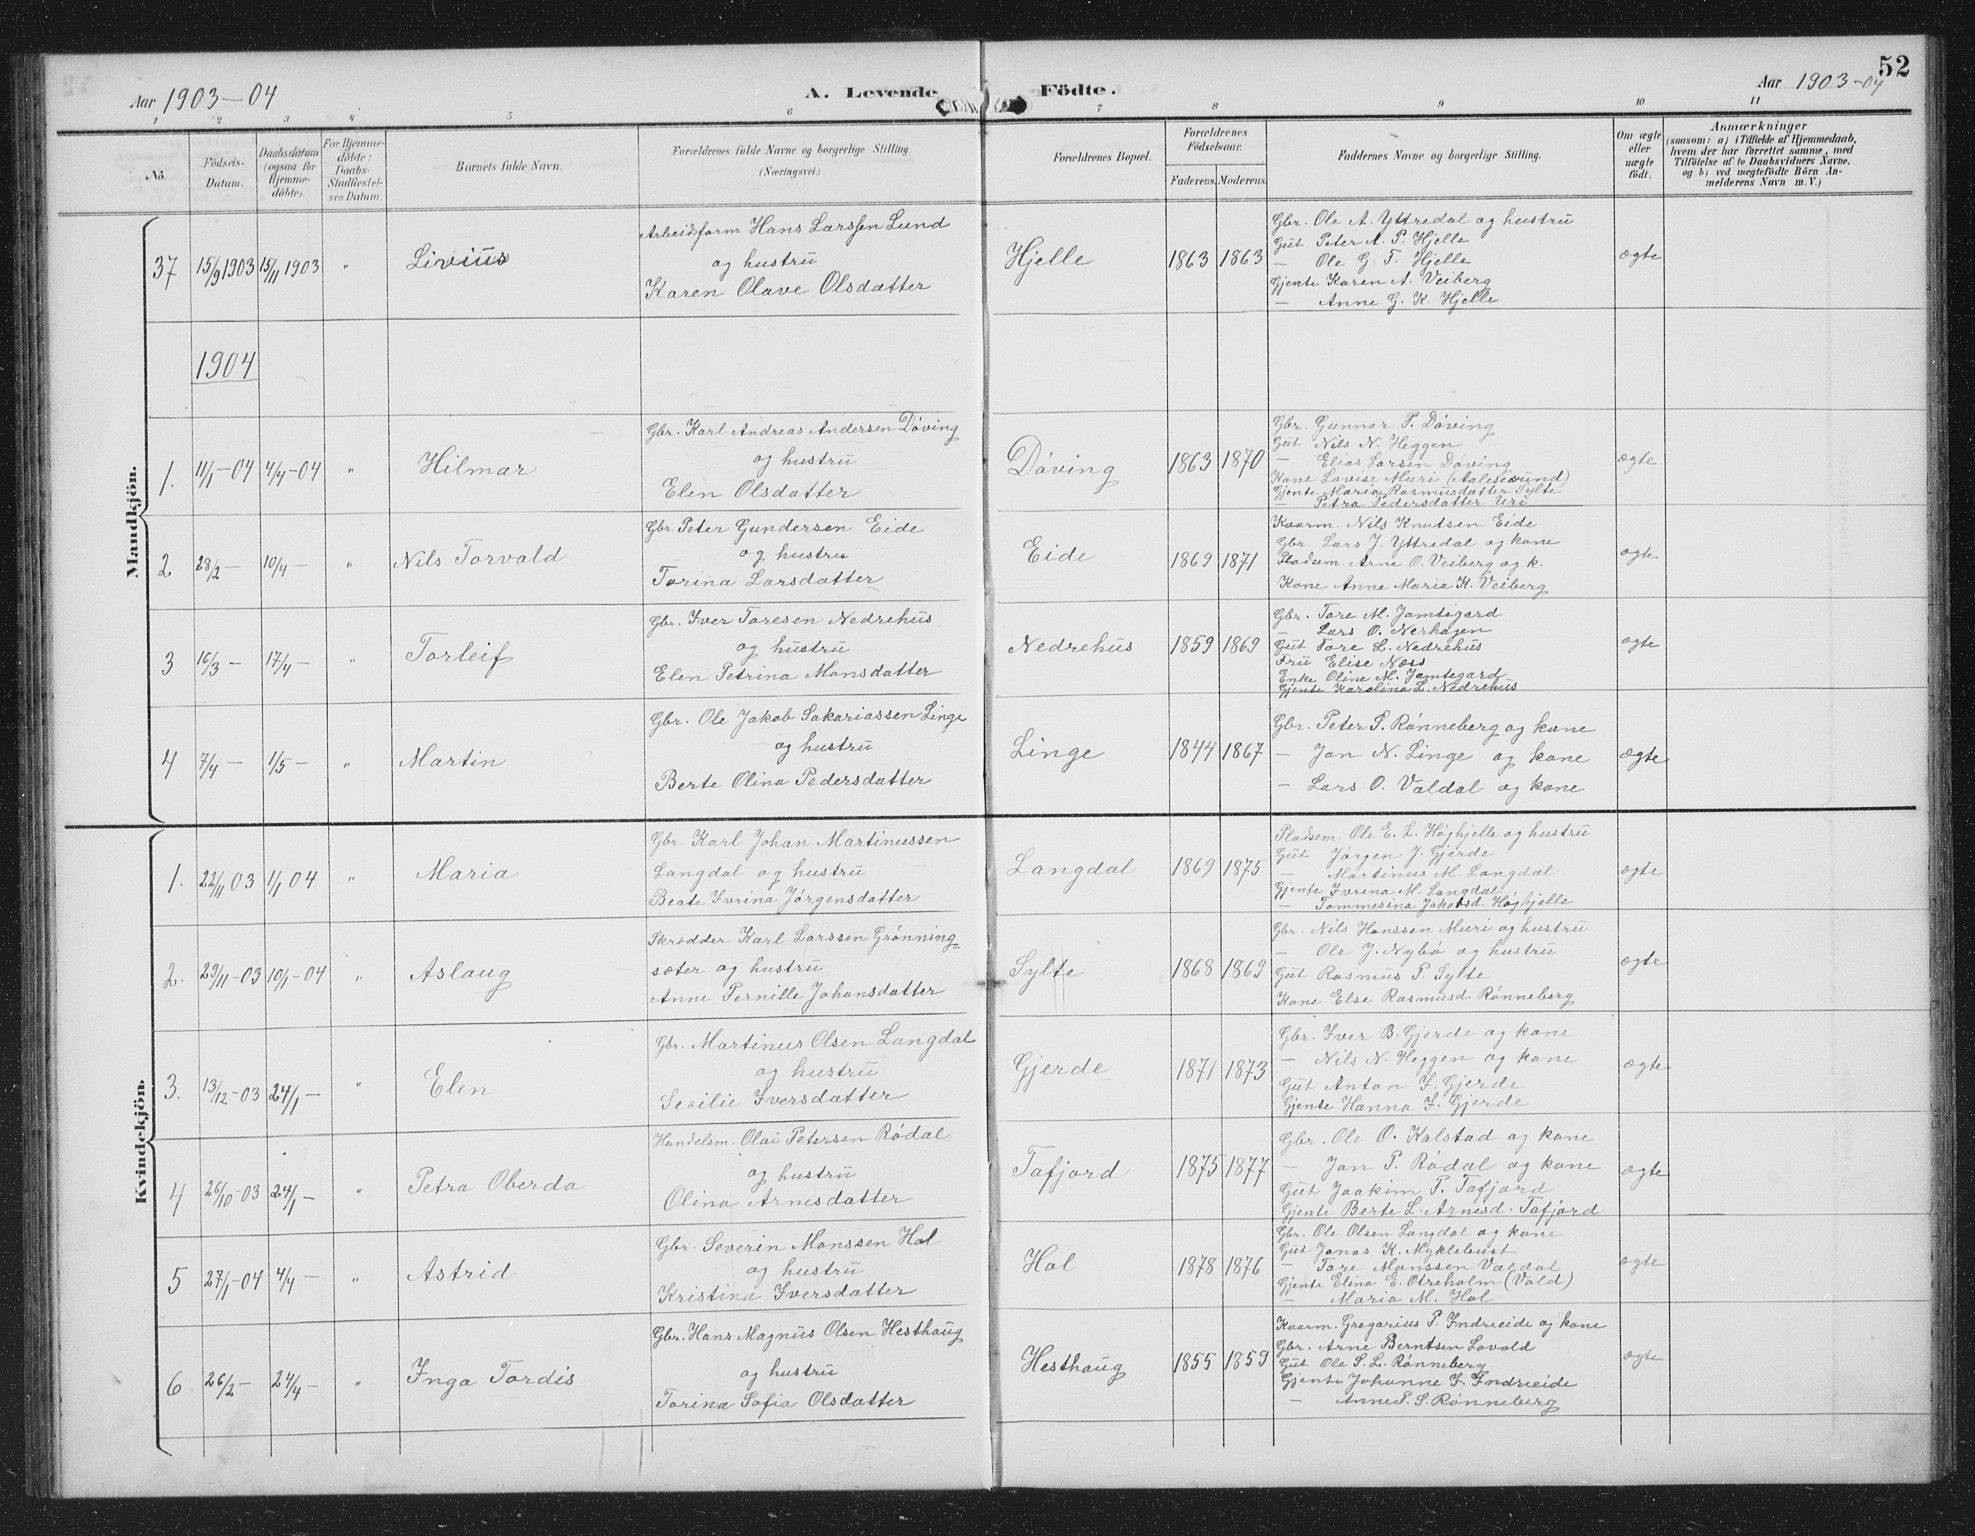 52
Aar 1903-04
A. Levende Födte.
Aar 1903-04
1 2 3 4 5 6 7 8 9 10 11
No.
Födsels-
Datum.
Daabsdatum
(ogsaa for
Hjemme-
döbte).
For Hjemme-
döbte:
Daabs-
Stadfæstel-
ses Datum.
Barnets fulde Navn.
Forældrenes fulde Navne og borgerlige Stilling
(Næringsvei.)
Forældrenes Bopæl.
Forældrenes
Födselsaar.
Faderens.
Moderens.
Faddernes Navne og borgerlige Stilling.
Om ægte
eller
uægte
födt.
Anmærkninger
(saasom: a) i Tilfælde af Hjemmedaab,
hvem der har forrettet samme, med
Tilföielse af to Daabsvidners Navne,
og b) ved uægtefödte Börn An-
melderens Navn m. V.)
Mandkjön.
37 15/9 1903 15/11 1903 " Livius
Arbeidsform Hans Larssen Lund
og hustru
Karen Olave Olsdatter
Hjelle 1863 1863
Gbr. Ole A. Yttredal og hustru
Gut Peter A. P. Hjelle
— Ole G. T. Hjelle
Gjente Karen A. Veiberg
— Anne G. K. Hjelle
ægte
1904
1. 11/1-04 4/4-04 " Hilmar
Gbr. Karl Andreas Andersen Døving
og hustru
Elen Olsdatter
Døving 1863 1870
Gbr. Gunnar P. Døving
Gut Nils N. Heggen
— Elias Larsen Døving
Kone Lovise Muri (Aalesund)
Gjente Maria Rasmusdatter Sylte
— Petra Pedersdatter Uri
ægte
2 28/2 — 10/4 — " Nils Torvald
Gbr. Peter Gundersen Eide
og hustru
Torina Larsdatter
Eide 1869 1871
Kaarm. Nils Knutsen Eide
Gbr. Lars J. Yttredal og kone
Pladsem. Arne O. Veiberg og k.
Kone Anne Maria K. Veiberg
ægte
3 16/3 — 17/4 — " Torleif
Gbr. Iver Toresen Nedrehus
og hustru
Elen Petrina Monsdatter
Nedrehus 1859 1869
Gbr. Tore M. Jamtegard
— Lars O. Nerhagen
Gut Tore L. Nedrehus
Fru Elise Næss
Enke Oline M. Jamtegard
Gjente Karolina L. Nedrehus
ægte
4 7/4 — 1/5 — " Martin
Gbr. Ole Jakob Sakariassen Linge
og hustru
Berte Olina Pedersdatter
Linge 1844 1867
Gbr. Peter S. Rønneberg og kone
— Jon N. Linge og kone
— Lars O. Valdal og kone
ægte
Kvindekjön.
1. 22/11 03 1/1 04 " Maria
Gbr. Karl Johan Martinussen
Langdal og hustru
Beate Ivrina Jørgensdatter
Langdal 1869 1875
Pladsem. Ole E. L. Høghjelle og hustru
Gut Jørgen J. Gjerde
— Martinus M. Langdal
Gjente Ivrina M. Langdal
— Tommesina Jakobsd. Høghjelle
ægte
2. 29/11-03 10/1-04 " Aslaug
Skrædder Karl Larssen Grønning-
sæter og hustru
Anne Pernille Johansdatter
Sylte 1868 1869
Gbr. Nils Hanssen Muri og hustru
— Ole J. Nybø og hustru
Gut Rasmus P. Sylte
Kone Else Rasmusd. Rønneberg
ægte
3. 13/12-03 24/1 — " Elen
Gbr. Martinus Olsen Langdal
og hustru
Secilie Iversdatter
Gjerde 1871 1873
Gbr. Iver B. Gjerde og kone
— Nils N. Heggen og kone
Gut Anton I. Gjerde
Gjente Hanna I. Gjerde
ægte
4 26/10-03 24/1 — " Petra Oberda
Handelsm. Olai Petersen Rødal
og hustru
Olina Arnesdatter
Tafjord 1875 1877
Gbr. Ole O. Kalstad og kone
— Jon P. Rødal og kone
Gut Joakim P. Tafjord
Gjente Berte L. Arnesd. Tafjord
ægte
5 27/1-04 4/4 — " Astrid
Gbr. Severin Monssen Hol
og hustru
Kristina Iversdatter
Hol 1878 1876
Gbr. Ole Olsen Langdal og kone
Gut Jonas K. Myklebust
— Tore Monssen Valdal
Gjente Elina E. Otreholm (Vald)
— Maria M. Hol
ægte
6 26/2 — 24/4 — " Inga Tordis
Gbr. Hans Magnus Olsen Hesthaug
og hustru
Torina Sofia Olsdatter
Hesthaug 1855 1859
Kaarm. Gregarius P. Indreeide og kone
Gbr. Arne Berntsen Lovold
Gut Ole S. L. Rønneberg
Gjente Johanne I. Indreeide
— Anne P. S. Rønneberg
ægte